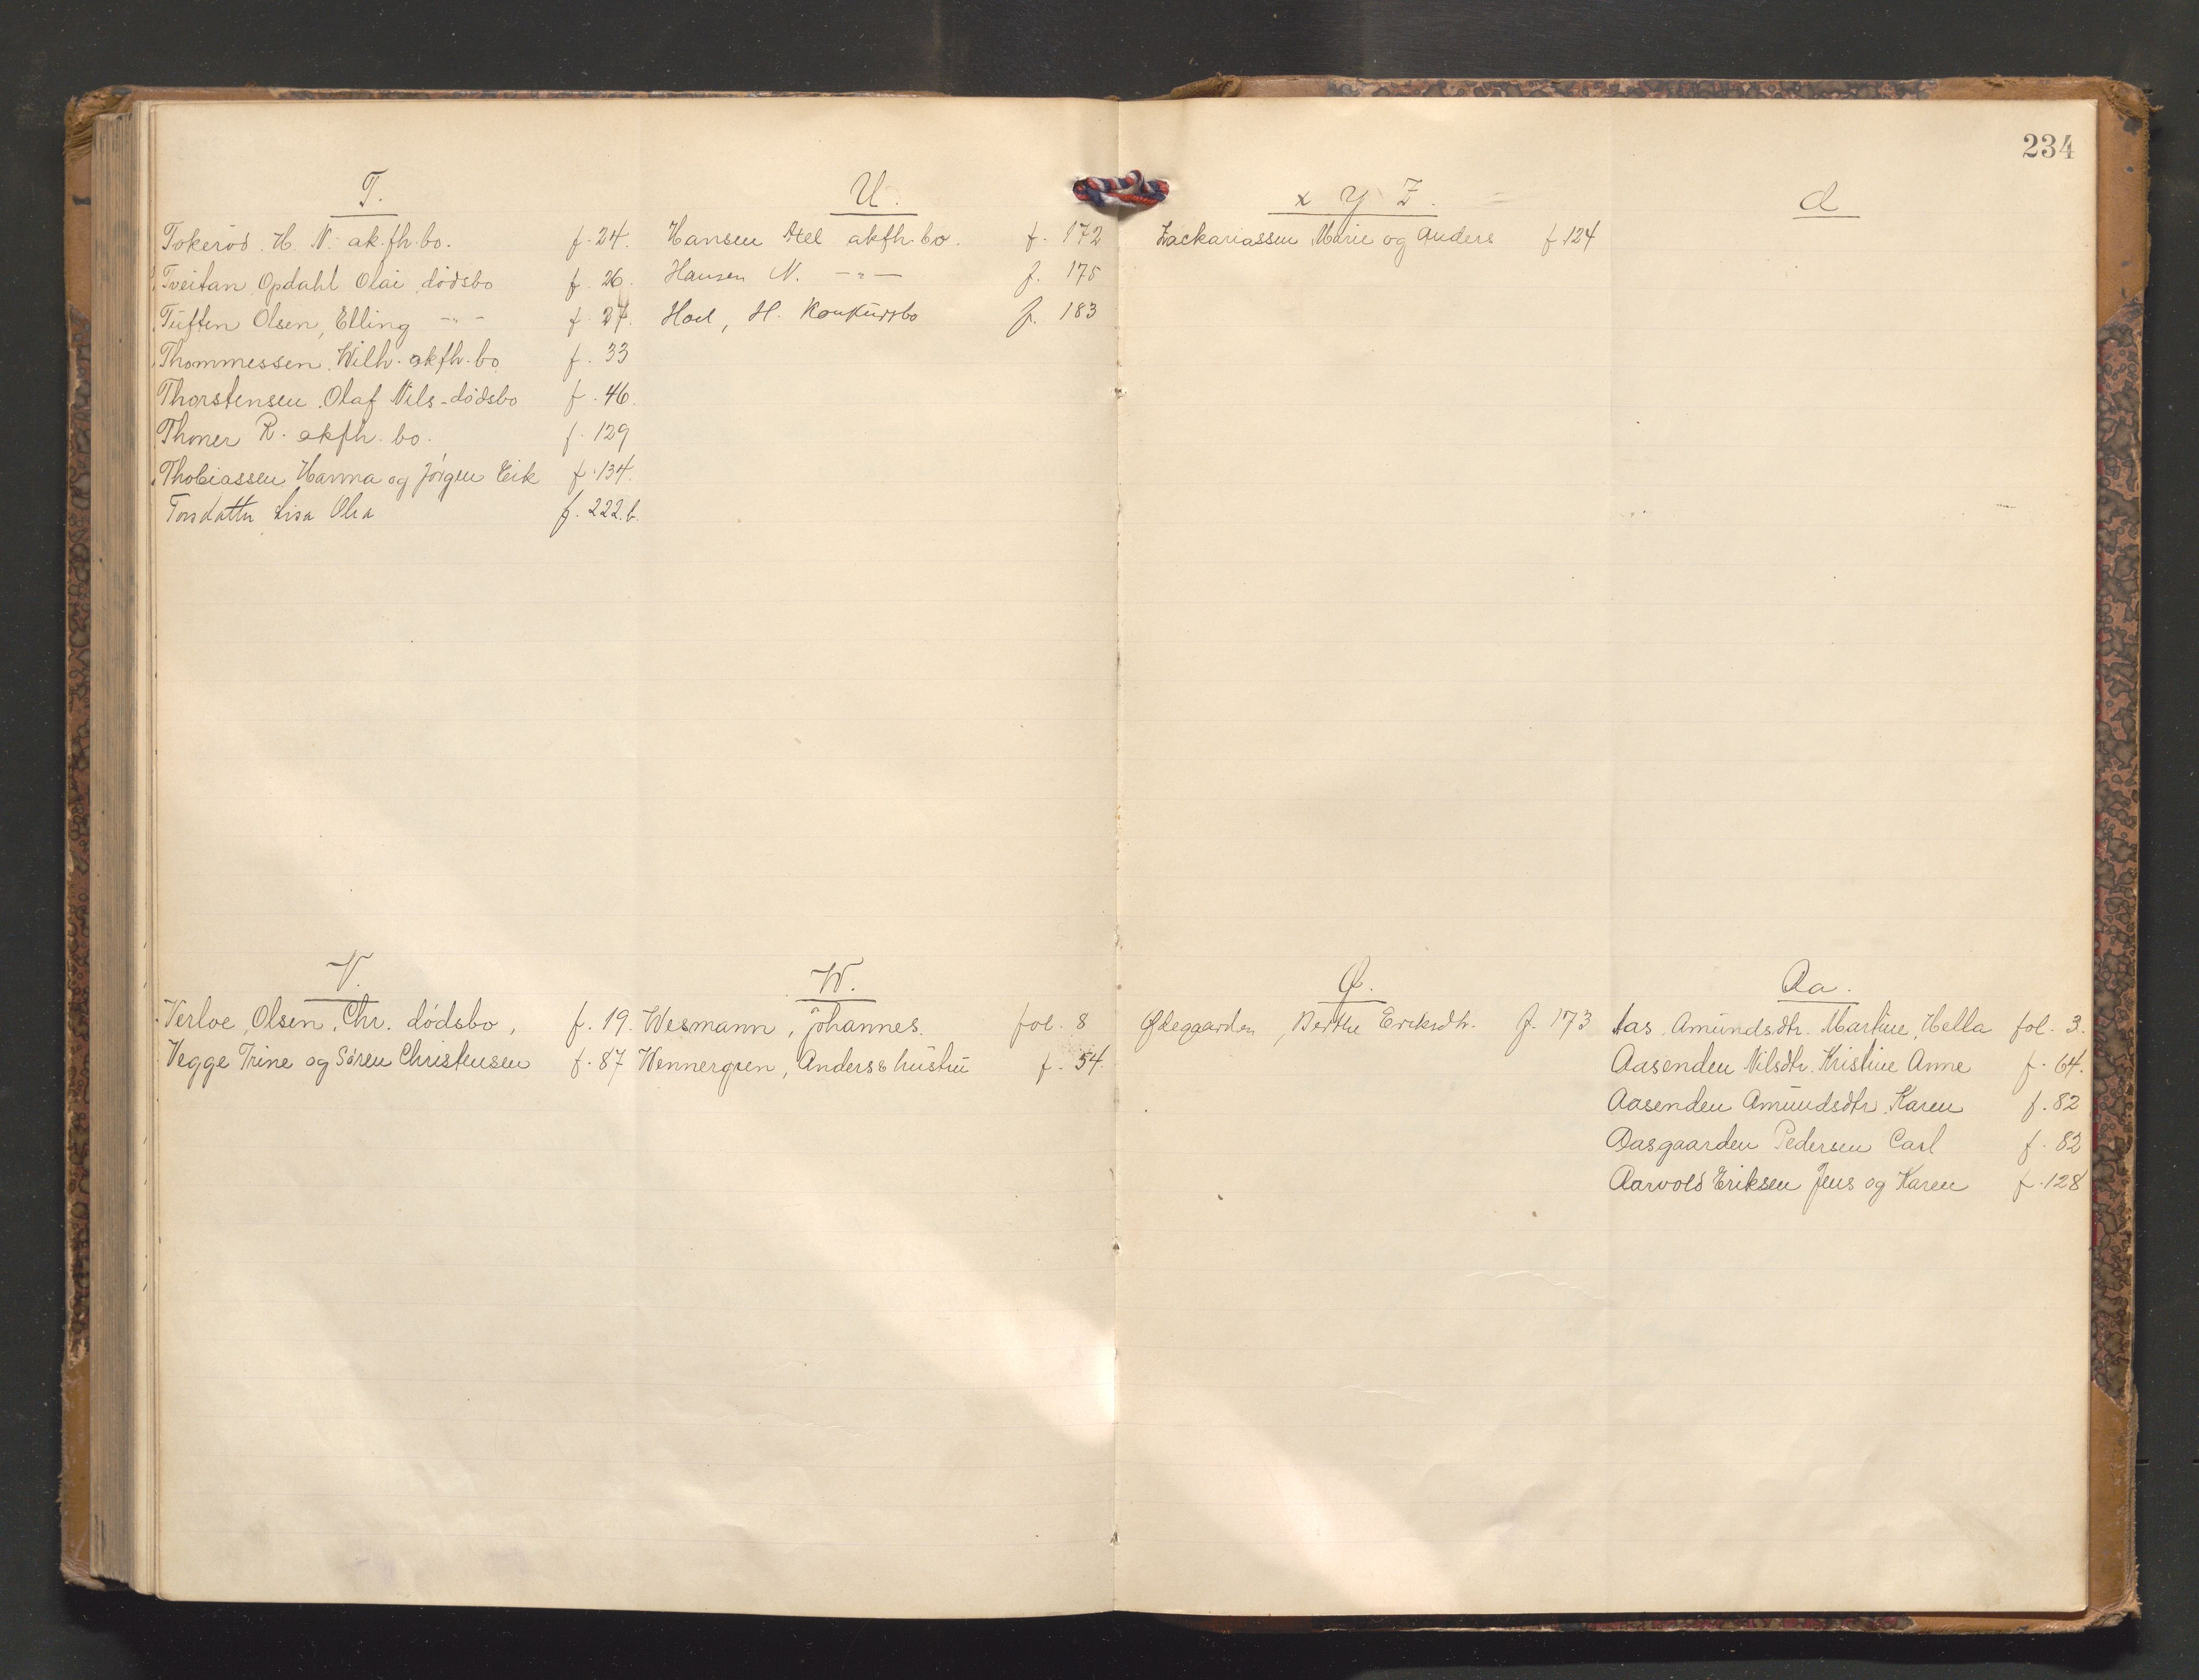 234
T.
Tokeröd. H. N. ak.fh.bo. f. 24.
Tveitan Opdahl Olai dödsbo f. 26.
Tuften Olsen, Elling -"- f. 27.
Thommessen. Wilh. akfh. bo. f. 33
Thorstensen. Olaf Nils-dödsbo f. 46.
Thoner R. akfh. bo. f. 129
Thobiassen. Hanna og Jörgen Eik f. 134.
Torsdatter Lisa Olea f. 222.b.
U.
Hansen Axel akfh. bo. f. 172
Hansen N. -"- f. 175
Hoel, H. Konkursbo f. 183
x y Z.
Zackariassen Marie og Anders f 124
V.
Verloe, Olsen, Chr. dödsbo, f. 19.
Vegge Trine og Sören Christensen f. 87
W.
Wesmann, Johannes. fol. 8
Wennergren, Anders & hustru f. 54.
Ø.
Ødegaarden, Berthe Eriksdtr. f. 173
Aa.
Aas. Amundsdtr. Martine, Hella fol. 3.
Aasenden Nilsdtr. Kristine Anne f. 64.
Aasenden Amundsdtr Karen f. 82
Aasgaarden Pedersen Carl f. 82
Aarvold Eriksen Jens og Karen f. 128